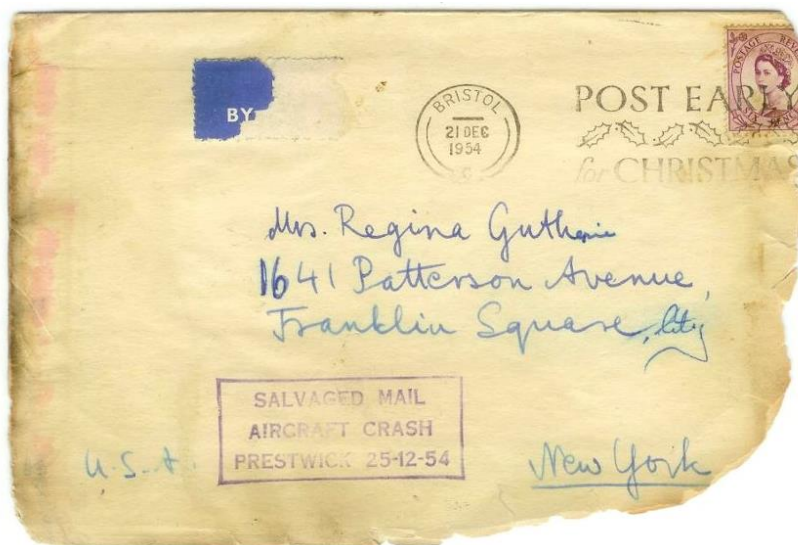 POSTAGE REVE
BRISTOL
21 DEC
1954
POST EARLY
for CHRISTMAS
BY
Mrs. Regina Guthrie
1641 Patterson Avenue,
Franklin Square, City
SALVAGED MAIL
AIRCRAFT CRASH
PRESTWICK 25-12-54
U.S.A.
New York